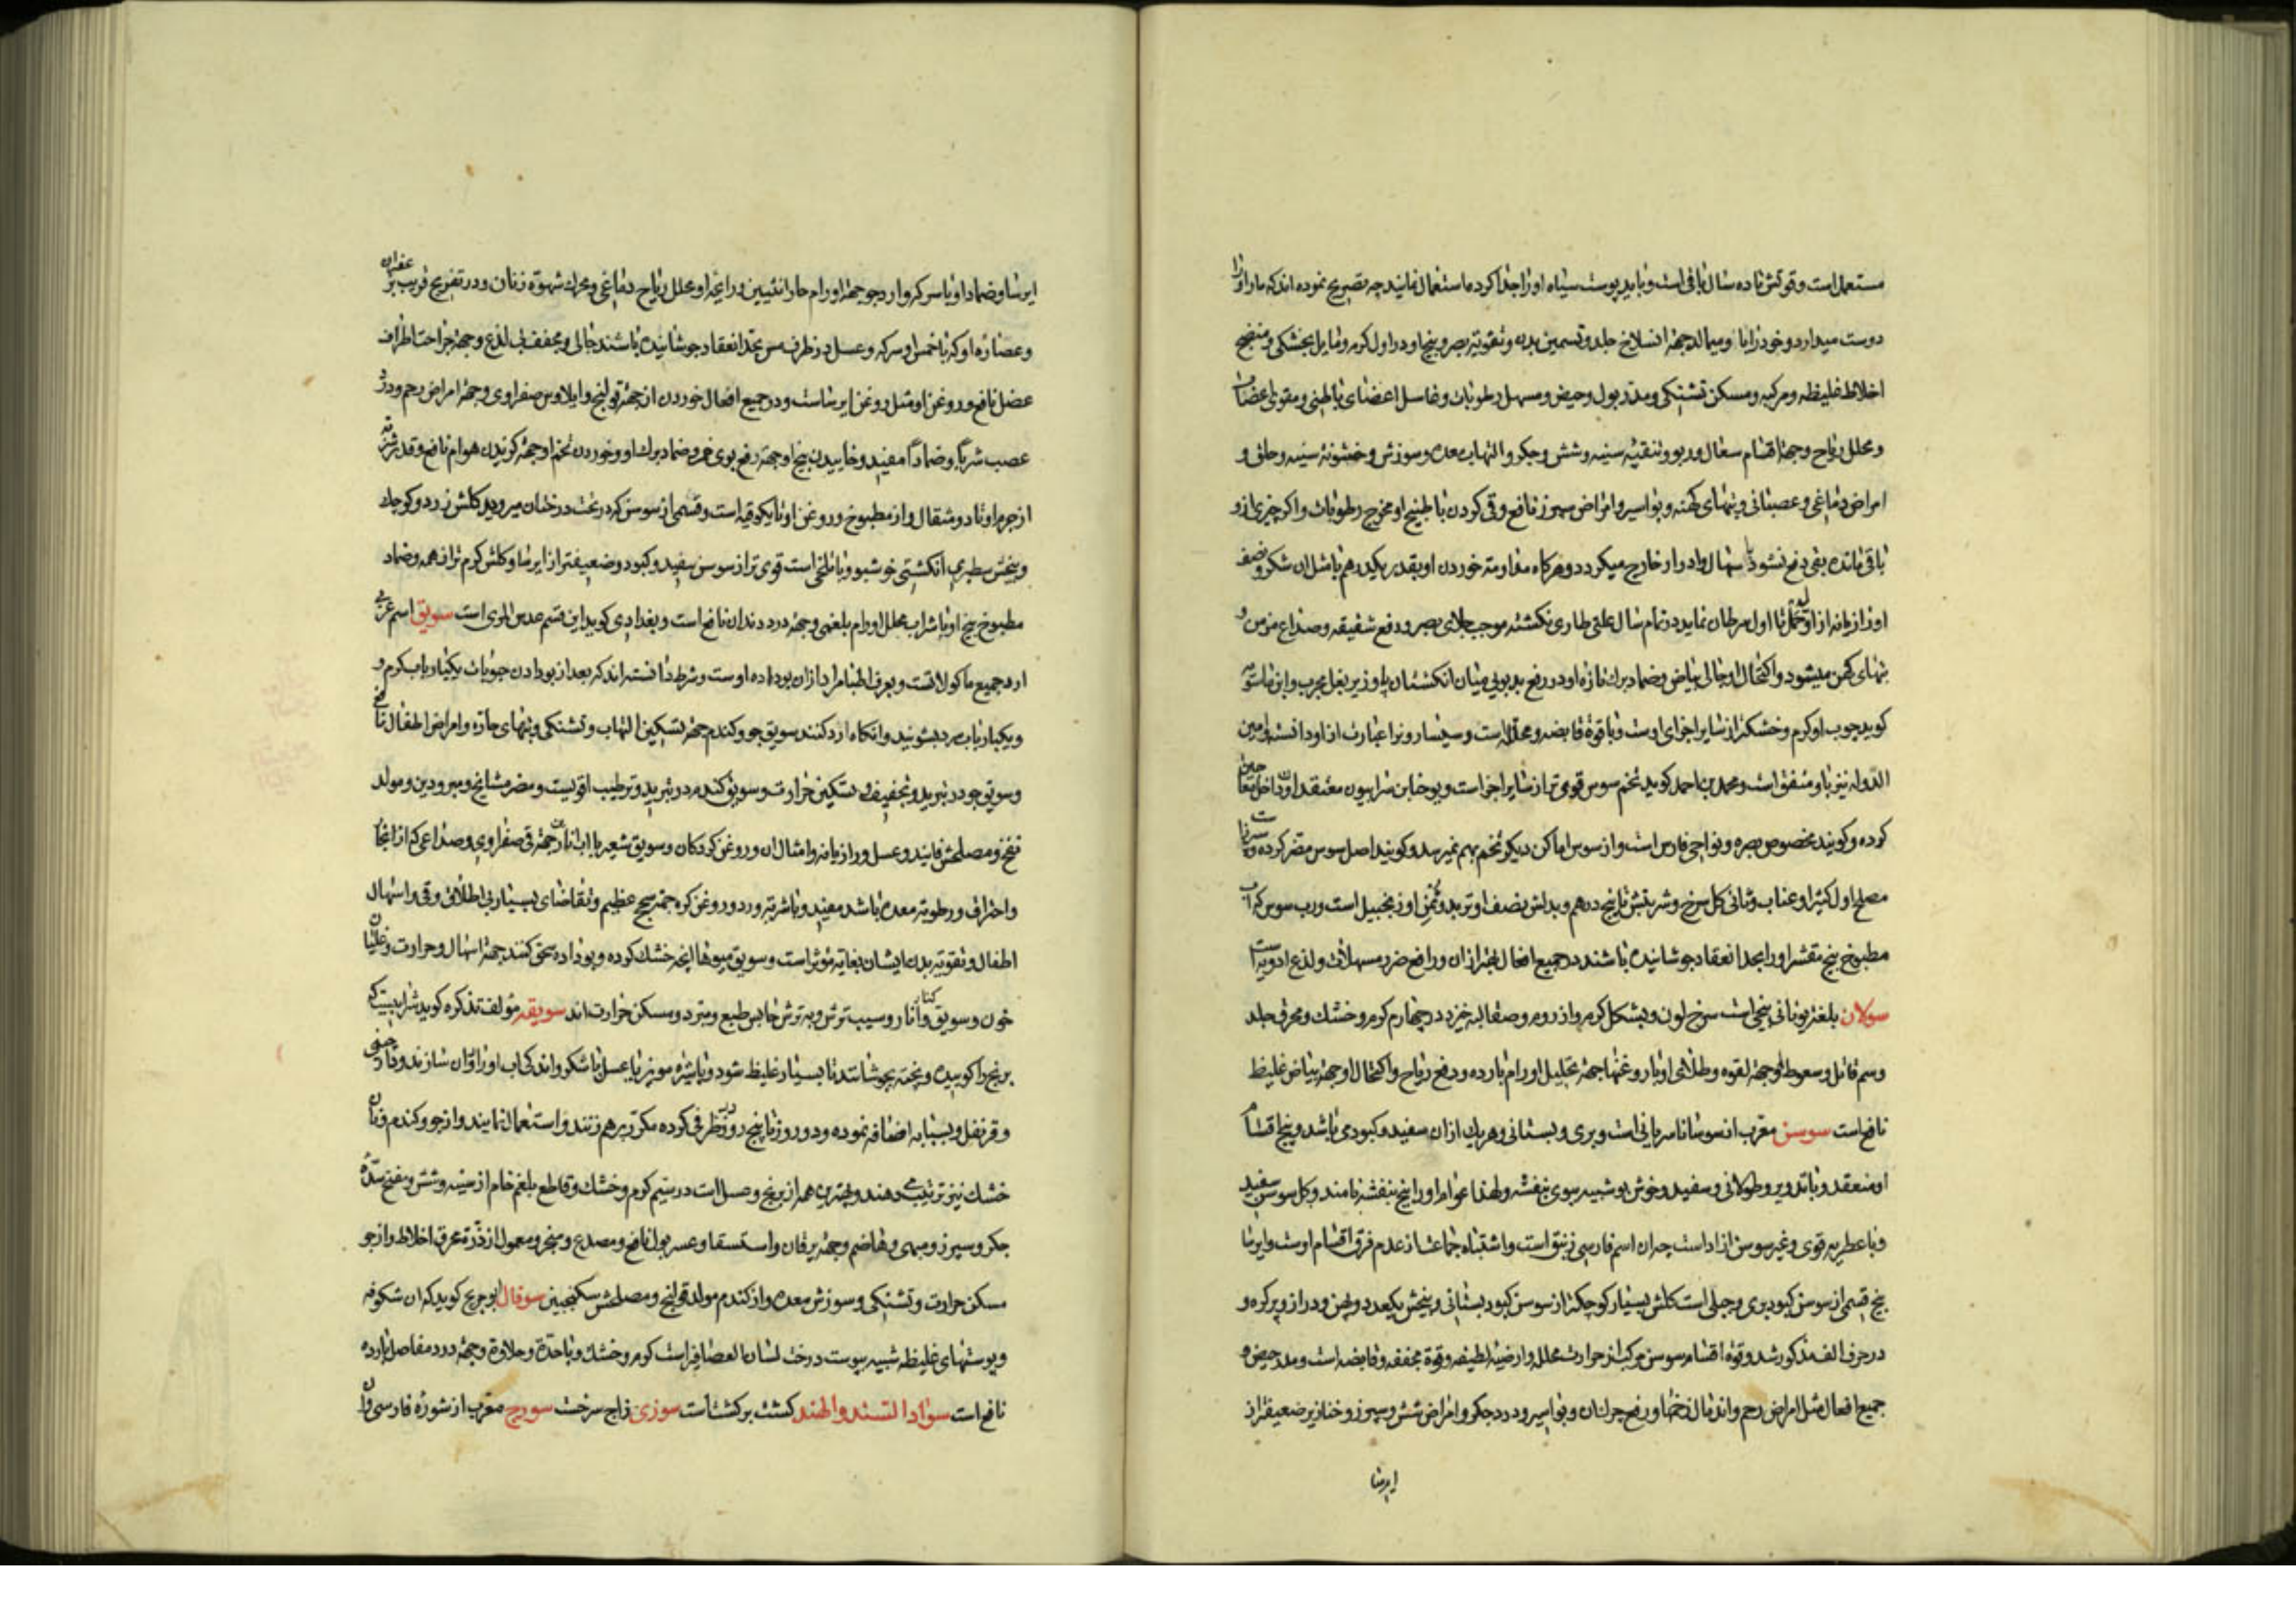 مستعمل است و قوتش تا ده سال باقی است و باید پوست سیاه او را جدا کرده استعمال نمایند چه تصریح نموده اند که مار او را
دوست میدارد و خود را با و میمالد جهة انسلاخ جلد و تسمین بدن و تقویة بصر و بیخ او در اول کرم و مایل بخشکی و منضج
اخلاط غلیظه و مرکبه و مسکن تشنکی و مدر بول و حیض و مسهل رطوبات و غاسل اعضای باطنی و مقوی اعصاب
و محلل ریاح و جهة اقسام سعال و ربو و تنقیه سینه و شش و جکر و التهاب معده و سوزش و خشونة سینه و حلق و
امراض دماغی و عصبانی و تبهای کهنه و بواسیر و امراض سپرز نافع و قی کردن با طبیخ او مخرج رطوبات و اکر چیزی از و
باقی مانده بقی دفع نشود با سهال و ادرار خارج میکردد و هرکاه مداومة خوردن او بقدر یکدرهم با مثل ان شکر و نصف
او رازیانه از اول حمل تا اول سرطان نماید در تمام سال علتی طاری نکشته موجب جلای بصر و دفع شقیقه و صداع مزمن و
تبهای کهن میشود و اکتحال او جالی بیاض و ضماد برک تازه او در رفع بدبویی میان انکشتان پا و زیر بغل مجرب و ابن ماسویه
کوید چوب او کرم و خشکتر از سایر اجزای اوست و با قوة قابضه و محلله است و سیسارون را عبارت از او دانسته و امین
الدوله نیز با و متفق است و محمد بن احمد کوید تخم سوس قوی تر از سایر اجزاست و یوحنا بن سرابیون معتقد او ان داخل معاجین
کرده و کویند مخصوص بصره و نواحی فارس است و از سوس اماکن دیکر تخم بهم نمیرسد و کویند اصل سوس مضر کرده و سپرز است
مصلح اول کتیرا و عناب و ثانی کل سرخ و شربتش تا پنج درهم و بدلش نصف او تربد و ثمن او زنجبیل است و رب سوس که اب
مطبوخ بیخ مقشر او را بحد انعقاد جوشانیده باشند در جمیع افعال بهتر از ان و رافع ضرر مسهلات و لذع ادویه است
سولان بلغة یونانی بیخی است سرخ لون و بشکل کرم و از روم و صقالبه خیزد در چهارم کرم و خشک و محرق جلد
و سم قاتل و سعوط او جهة لقوه و طلای او با روغنها جهة تحلیل اورام بارده و دفع ریاح و اکتحال او جهة بیاض غلیظ
نافع است سوسن معرب از سوسانا سریانی است و بری و بستانی و هر یک از ان سفید و کبود می باشد و بیخ اقسام
او منعقد و با تدویر و طولانی و سفید و خوش بو شبیه ببوی بنفشه و لهذا عوام او را بیخ بنفشه نامند و کل سوسن سفید
و با عطریه قوی و غیر سوسن ازاد است چه ان اسم فارسی زنبق است و اشتباه جماعت از عدم فرق اقسام اوست و ایرسا
بیخ قسمی از سوسن کبود بری و جبلی است کلش بسیار کوچکتر از سوسن کبود بستانی و بیخش یکعدد و پهن و دراز و پر کره و
در حرف الف مذکور شد و قوة اقسام سوسن مرکب از حرارت محلله و ارضیة لطیفه و قوة مجففه و قابضه است و مدر حیض و
جمیع افعال مثل امراض رحم و اندمال زخمها و رفع جرب ان و بواسیر و درد جکر و امراض شش و سپرز و خنازیر ضعیفتر از
ایرسا
ایرسا و ضماد او با سرکه و ارد جو جهة اورام حار انثیین و رایحه او محلل ریاح دماغی و محرک شهوة زنان و در تفریح قریب بزعفران
و عصاره او که با خمس او سرکه و عسل در ظرف مس بحد انعقاد جوشانیده باشند جالی و مجفف بی لذع و جهة جراحت اطراف
عضل نافع و روغن او مثل روغن ایرساست و در جمیع افعال خوردن از جهة قولنج و ایلاوس صفراوی و جهة امراض رحم و درد
عصب شربا و ضمادا مفید و خاییدن بیخ او جهة رفع بوی خمر و ضماد برک او و خوردن تخم او جهة کزیدن هوام نافع و قدر شربة
از جرم او تا دو مثقال و از مطبوخ و روغن او تا یکوقیه است و قسمی از سوسن که در تحت درختان میروید کلش زرد و کوچک
و بیخش سطبری انکشتی خوشبو و با تلخی است قوی تر از سوسن سفید و کبود و ضعیفتر از ایرسا و کلش کرم تر از همه و ضماد
مطبوخ بیخ او با شراب محلل اورام بلغمی و جهة درد دندان نافع است و بغدادی کوید این قسم عدس المری است سویق اسم عربی
ارد جمیع ماکولاتست و بعرف اطبا مراد از ان بو داده اوست و شرط دانسته اند که بعد از بو دادن حبوبات یکبار باب کرم و
و یکبار باب سرد بشویند و انکاه ارد کنند سویق جو و کندم جهة تسکین التهاب و تشنکی و تبهای حاره و امراض اطفال نافع
و سویق جو در تبرید و تجفیف و تسکین حرارت و سویق کندم در تبرید و ترطیب اقویست و مضر مشایخ و مبرودین و مولد
نفخ و مصلحش فانید و عسل و رازیانه و امثال ان و روغن کردکان و سویق شعیر با اب انارین جهة قی صفراوی و صداعی که از ابخره
و احتراق و رطوبة معده باشد مفید و باشربه و ردور و روغن کره جهة سحج عظیم و تقاضای بسیار بی اطلاق و قی و اسهال
اطفال و تقویة بدن ایشان بغایة مؤثر است و سویق میوها انچه خشک کرده و بو داده سحق کنند جهة اسهال و حرارت و غلیان
خون و سویق کنار و انار و سیب ترش و به ترش حابس طبع و مبرد و مسکن حرارت اند سویقه مؤلف تذکره کوید شرابیست که
برنج را کوبیده و پخته بجوشانند تا بسیار غلیظ شود و باشیره مویز یا عسل یا شکر و اندکی اب او را روان سازند و دارچینی
و قرنفل و بسباسه اضافه نموده و دو روز تا پنج روز در ظرفی کرده مکرر بر هم زنند و استعمال نمایند و از جو و کندم و نان
خشک نیز ترتیب می دهند و بهترین همه از برنج و عسل است در سیم کرم و خشک و قاطع بلغم خام از سینه و شش و مفتح سده
جکر و سپرز و مبهی و هاضم و جهة یرقان و استسقا و عسر بول نافع و مصدع و مبخر و معمول از ذره محرق اخلاط و از جو
مسکن حرارت و تشنکی و سوزش معده و از کندم مولد قولنج و مصلحش سکنجبین سوفال ابو جریج کوید که ان شکوفه
و پوستهای غلیظه شبیه بپوست درخت لسان العصافیر است کرم و خشک و با حدة و حلاوة و جهة درد مفاصل بارده
نافع است سواد السند و الهند کشت بر کشت است سوزی زاج سرخست سورج معرب از شوره فارسی و ان